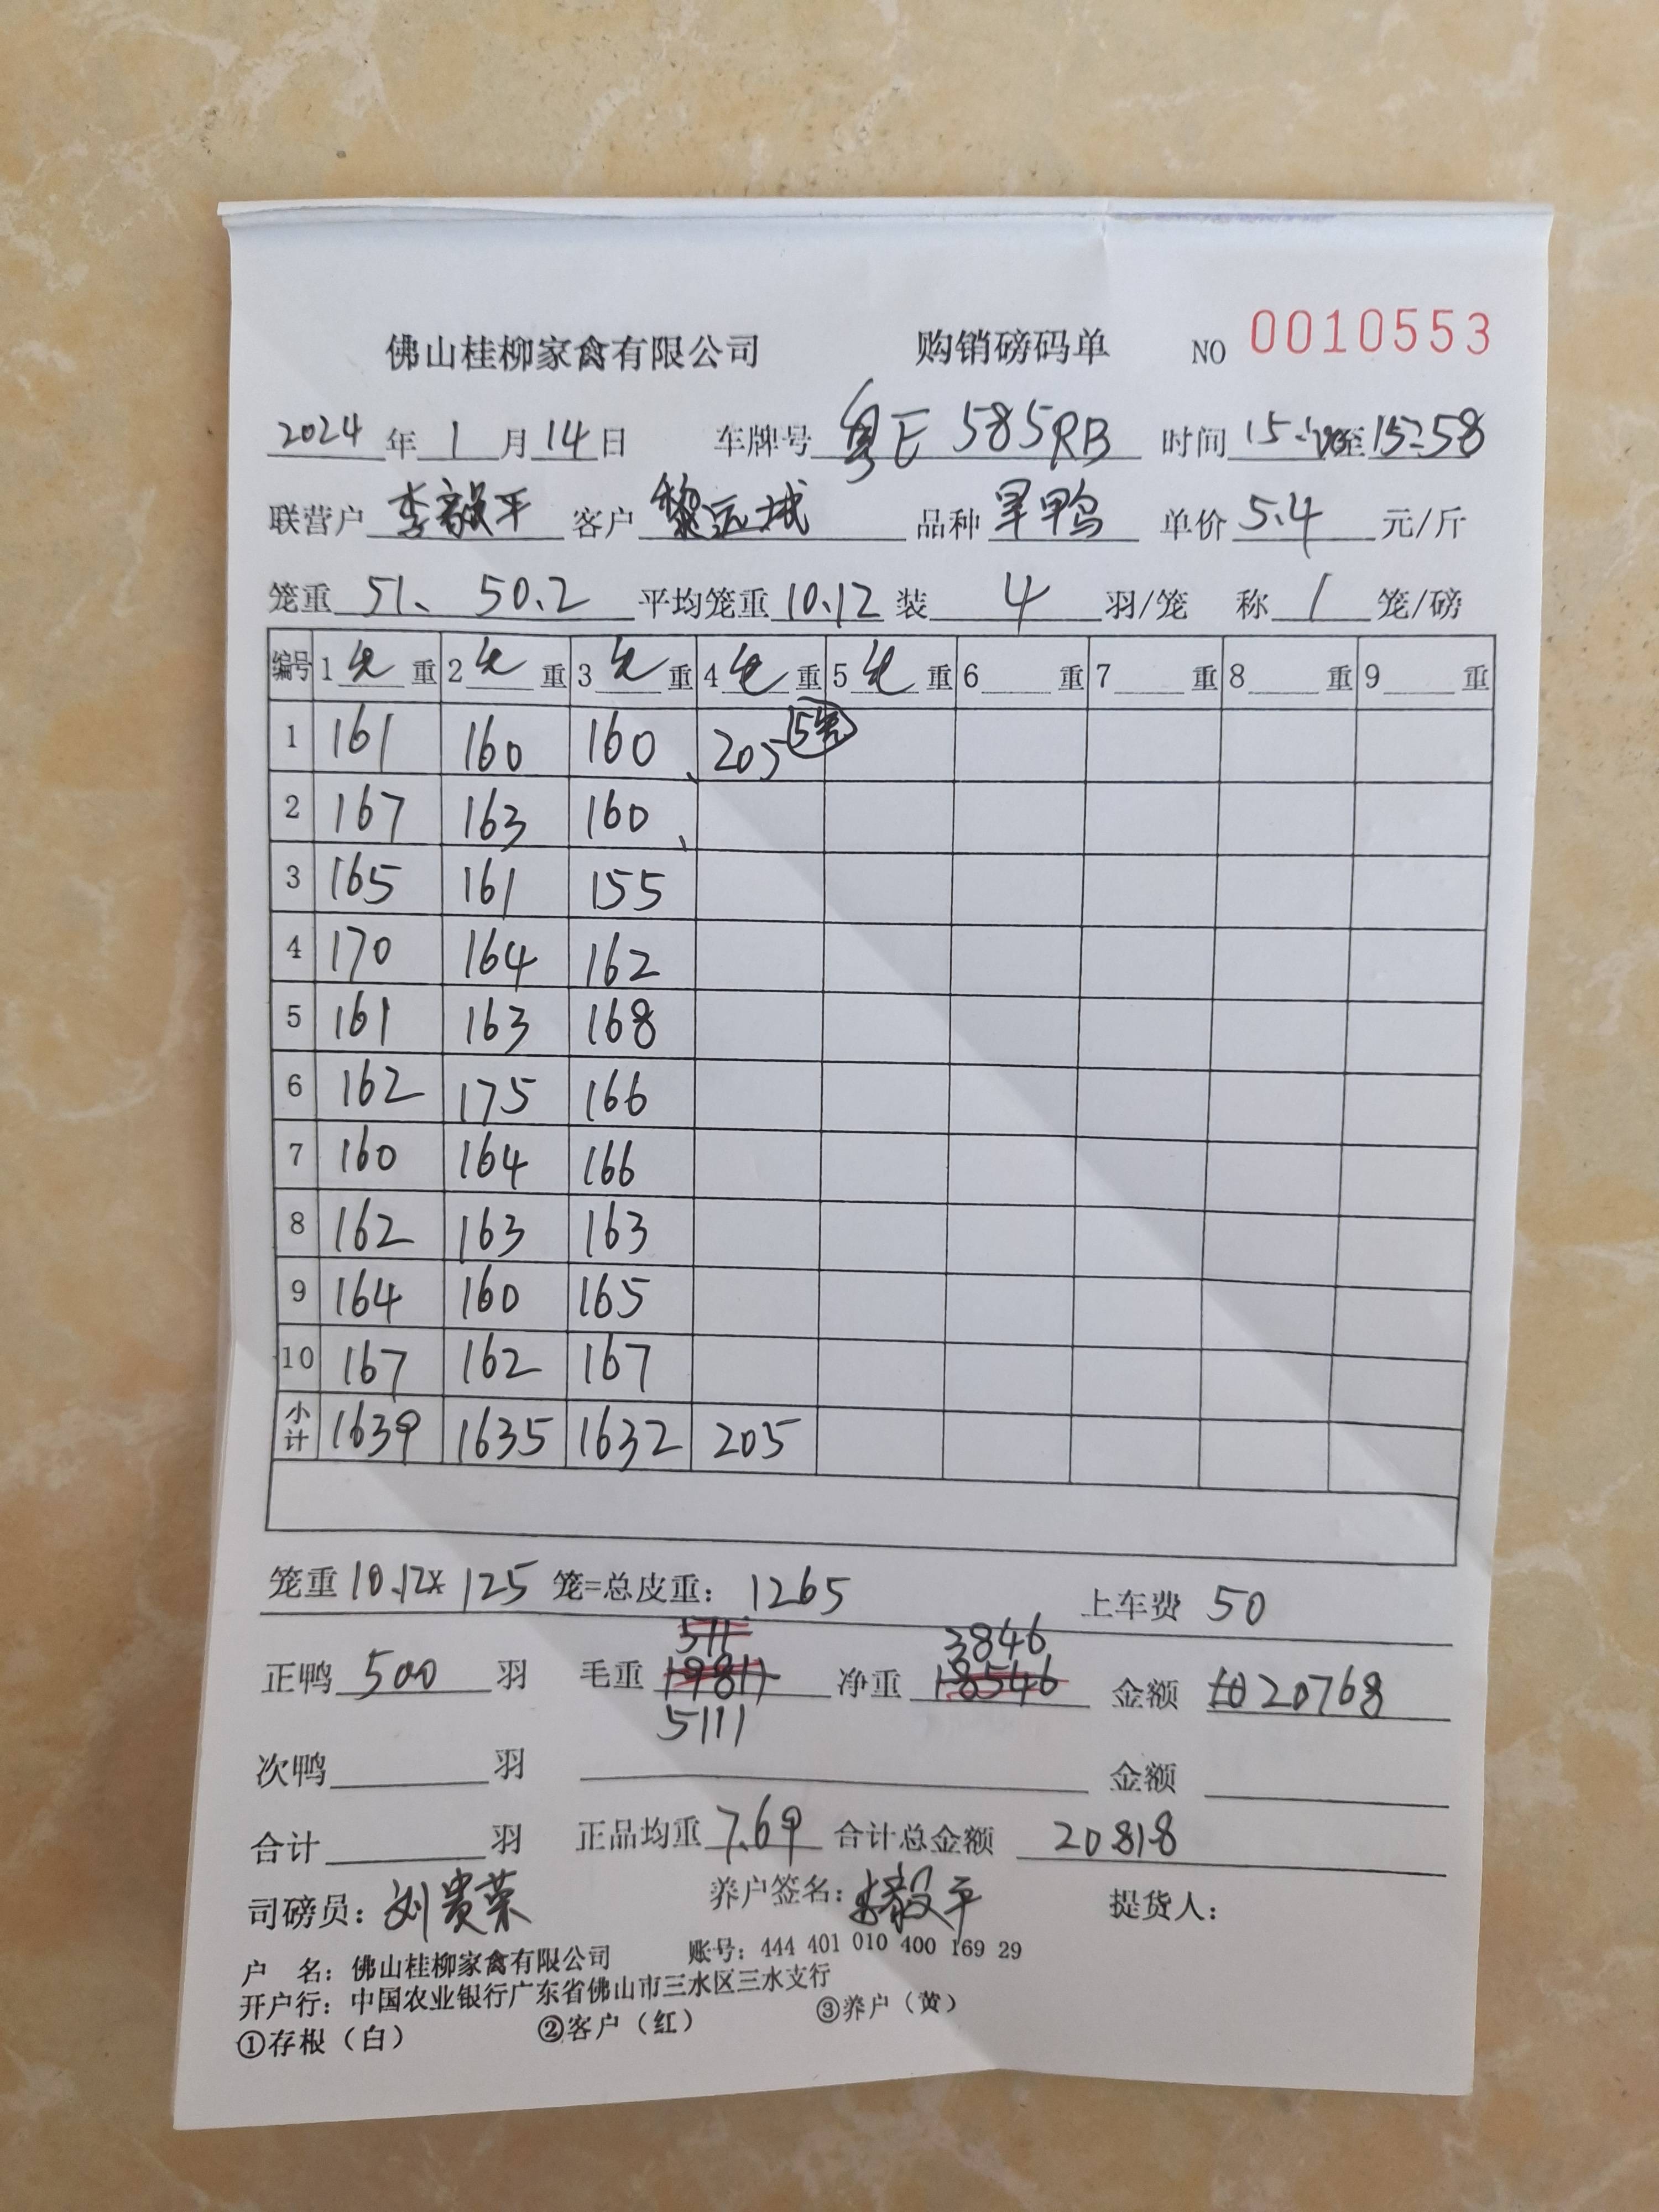 佛山桂柳家禽有限公司 购销磅码单 NO 0010553
2024 年 1 月 14 日 车牌号 粤E 585RB 时间 15: 至 15:58
联营户 李毅平 客户 黎远城 品种 旱鸭 单价 5.4 元/斤
笼重 51、 50.2 平均笼重 10.12 装 4 羽/笼 称 1 笼/磅
编号 1 毛 重 2 毛 重 3 毛 重 4 毛 重 5 毛 重 6 重 7 重 8 重 9 重
1 161 160 160 205
2 167 163 160
3 165 161 155
4 170 164 162
5 161 163 168
6 162 175 166
7 160 164 166
8 162 163 163
9 164 160 165
10 167 162 167
小计 1639 1635 1632 205
笼重 10.12× 125 笼=总皮重: 1265 上车费 50
正鸭 500 羽 毛重 5111 净重 3846 金额 20768
次鸭 羽 金额
合计 羽 正品均重 7.69 合计总金额 20818
司磅员: 刘贵荣 养户签名: 李毅平 提货人:
户 名: 佛山桂柳家禽有限公司 账号: 444 401 010 400 169 29
开户行: 中国农业银行广东省佛山市三水区三水支行
①存根（白） ②客户（红） ③养户（黄）